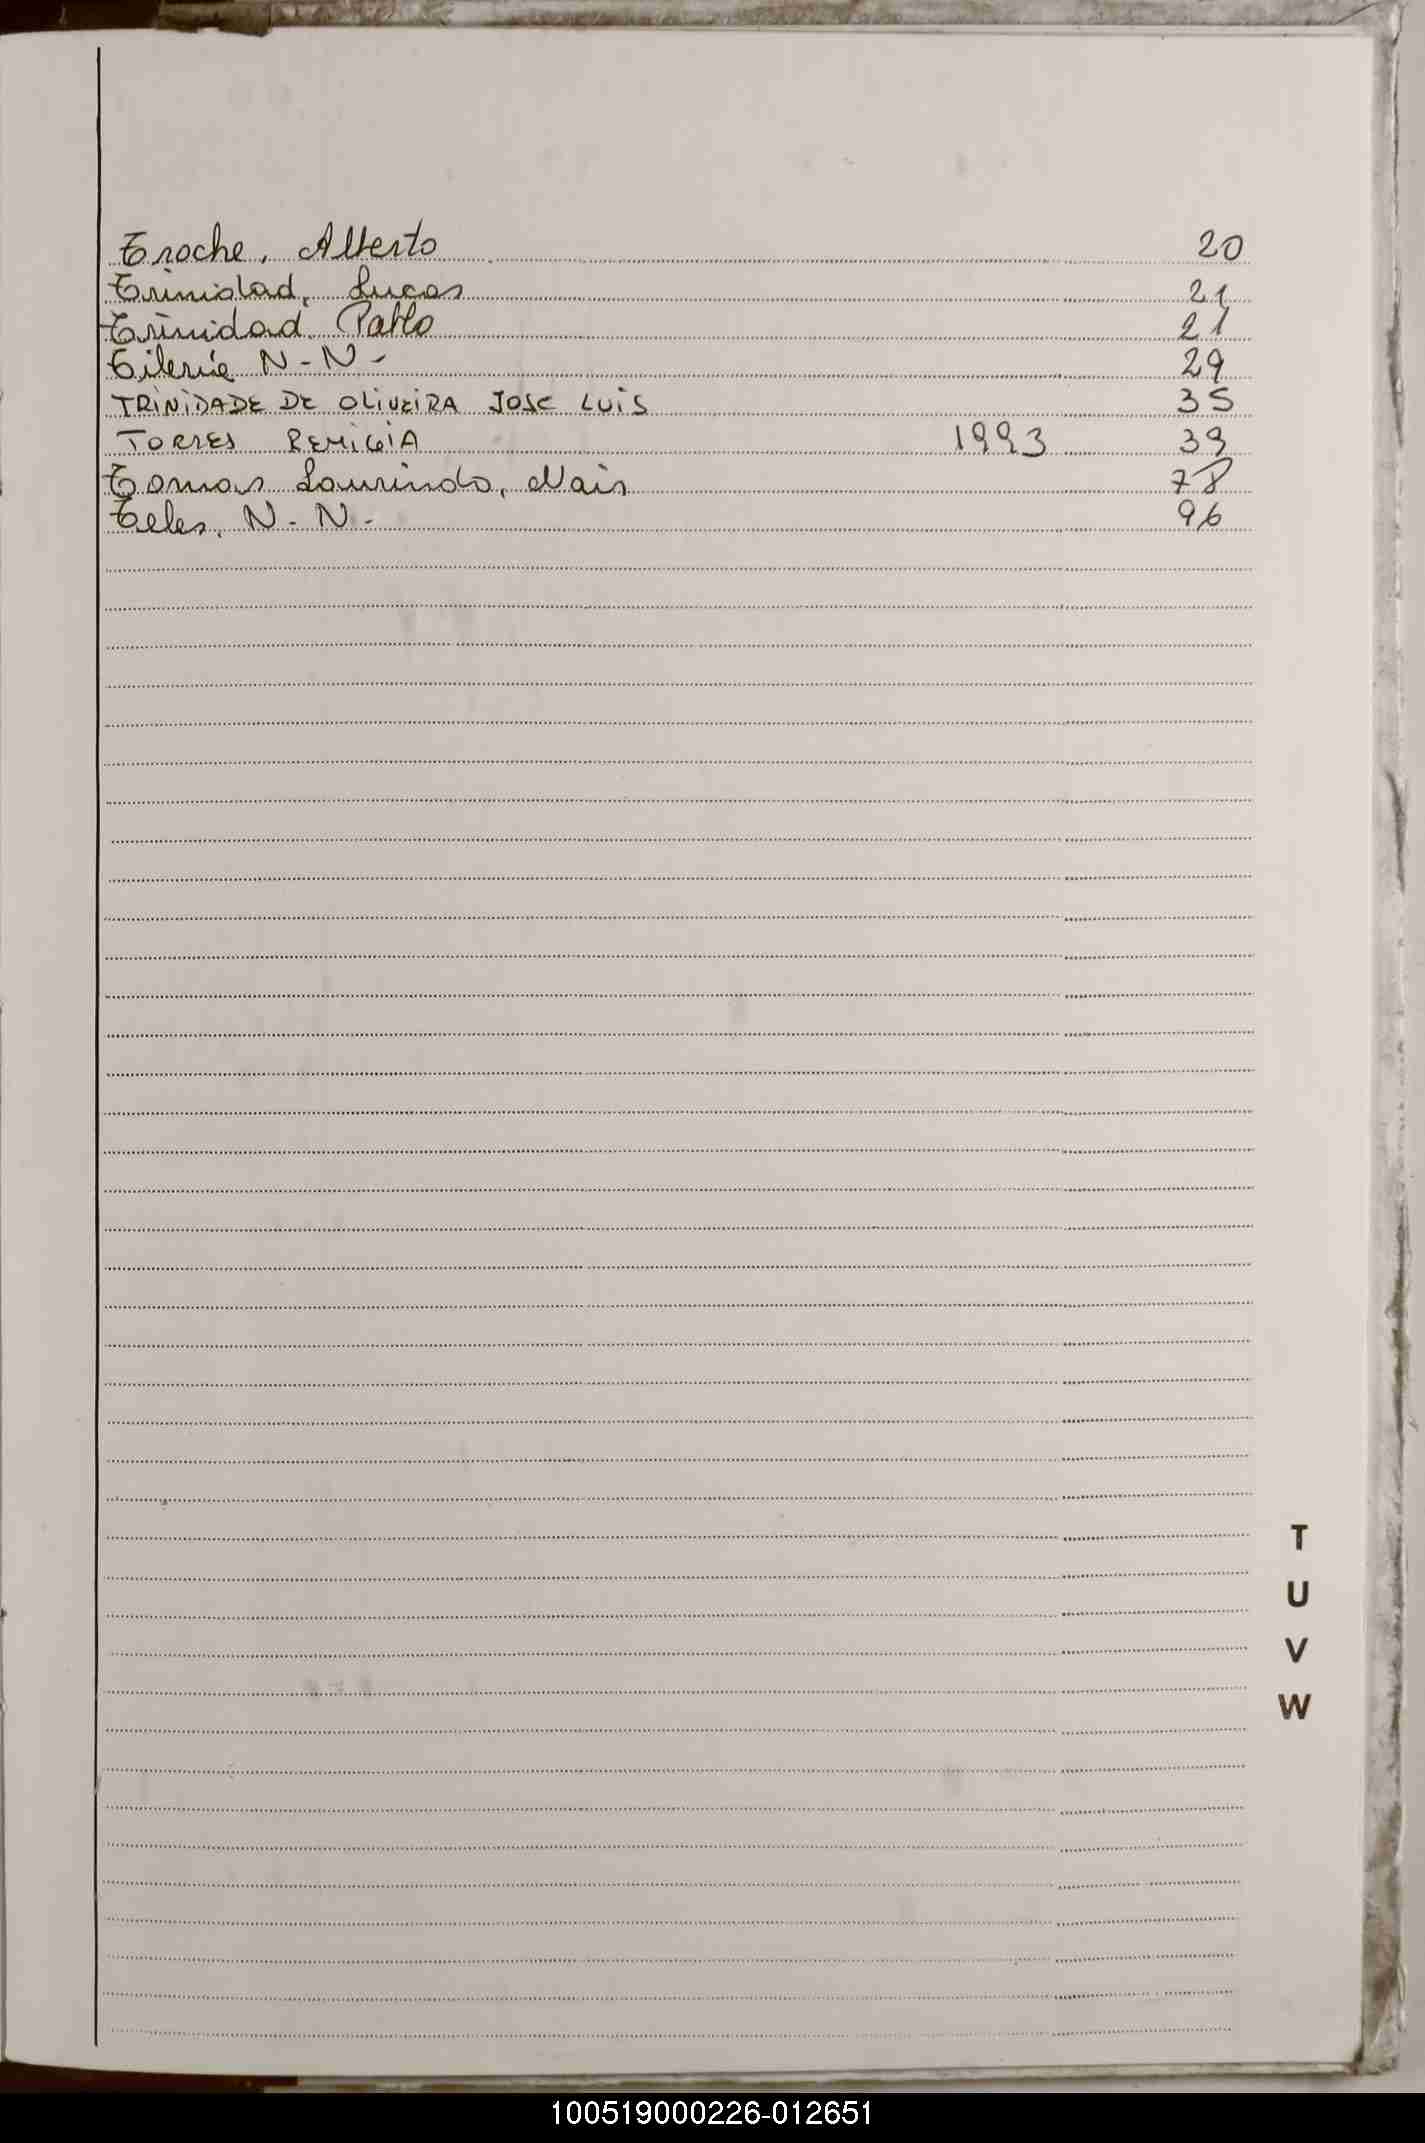 Troche, Alberto 20
Trinidad, Lucas 21
Trinidad Pablo 21
N-N- 29
TRINIDADE DE OLIVEIRA JOSE LUIS 35
TORRES REMIGIA 1993 39
Tomas Laurindo, Nair 78
Teles, N-N- 96
T
U
V
W
100519000226-012651